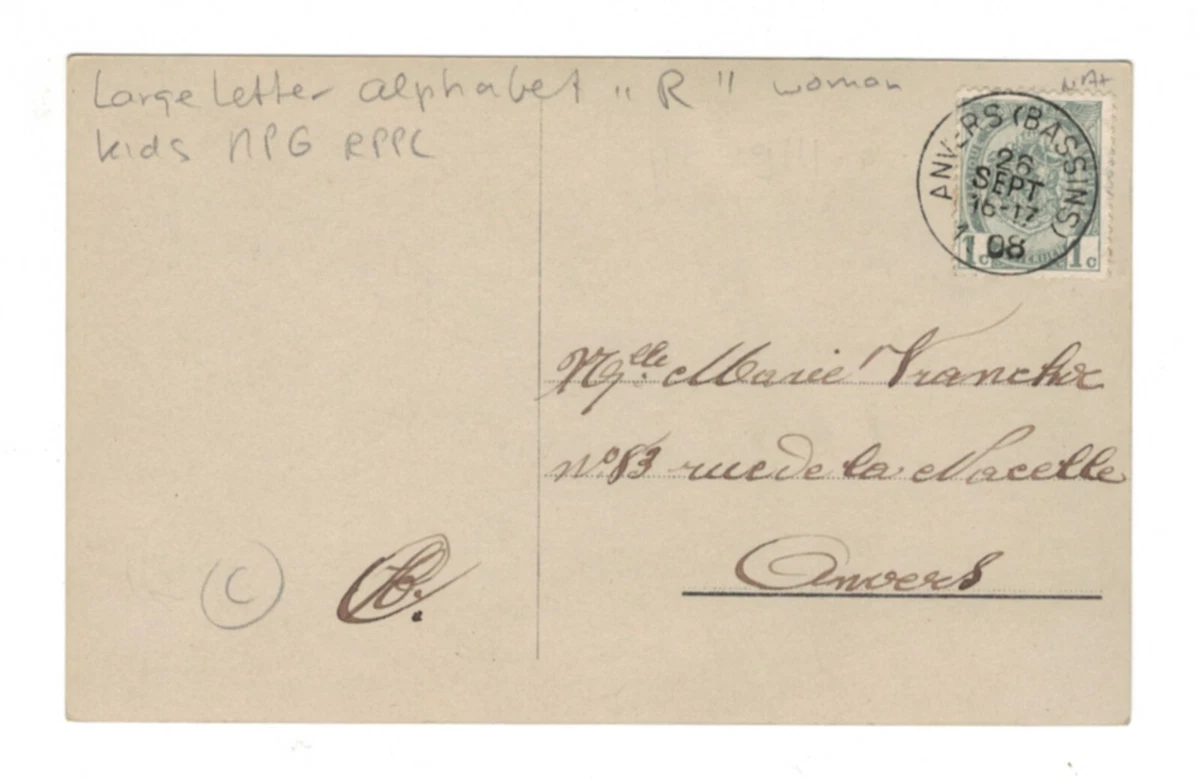 Large Letter alphabet "R" woman
kids NPG RPPC
ANVERS (BASSINS)
26
SEPT
16-17
08
1c 1c
Mlle. Marie Vranckx
No 83 rue de la Nacelle
Anvers
C